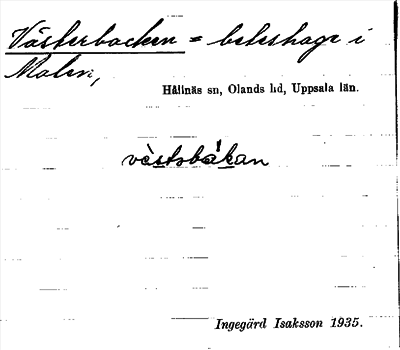 Västerbacken = beteshage i
Malen,
Hållnäs sn, Olands hd, Uppsala län.
västsbákan
Ingegärd Isaksson 1935.